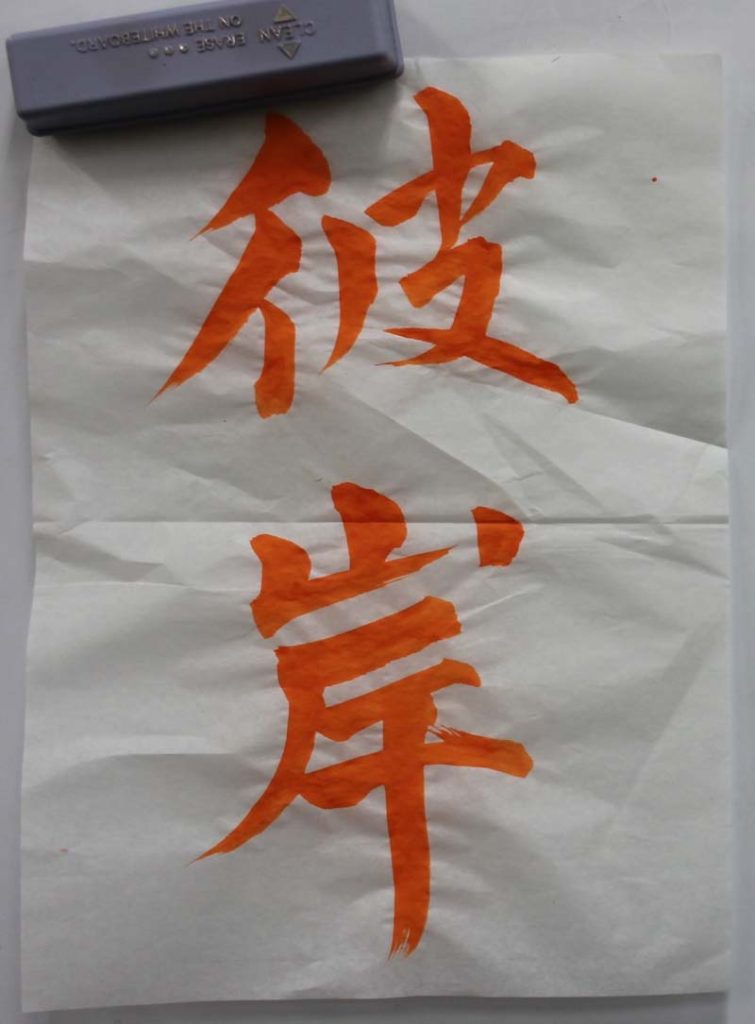 CLEAN ERASE
ON THE WHITEBOARD.
彼
岸